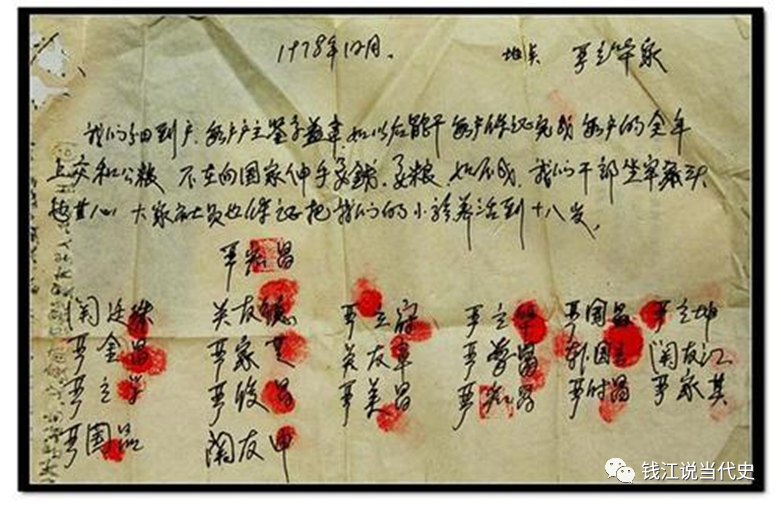 1978年12月. 地点 严立华家
我们分田到户.每户户主签字盖章.如以后能干每户保证完成每户的全年
上交和公粮 不在向国家伸手要钱.要粮.如不成.我们干部坐牢杀头
也甘心.大家社员也保证把我们的小孩养活到十八岁.
严宏昌
关廷珠 关友德 严立符 严立华 严国昌 严立坤
严金昌 严家芝 关友章 严学昌 韩国云 关友江
严立学 严俊昌 严美昌 严宏昌 严付昌 严家其
严国品 关友申
钱江说当代史